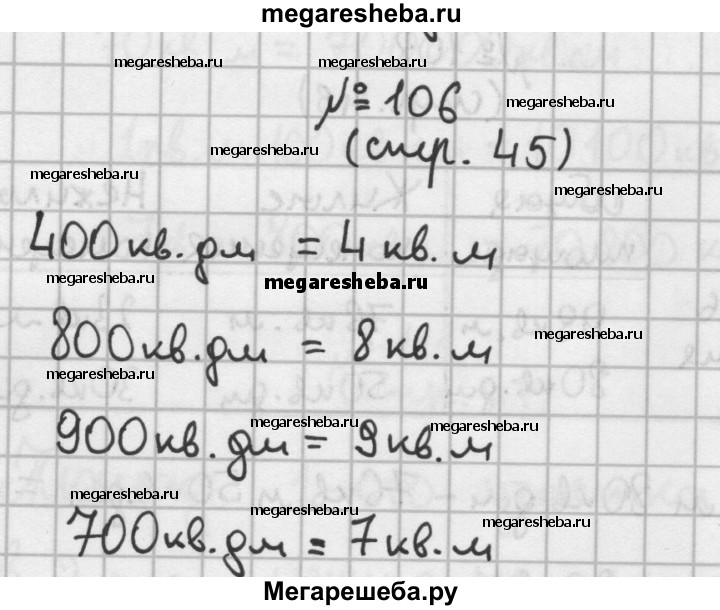 megaresheba.ru
megaresheba.ru megaresheba.ru
№ 106
megaresheba.ru
megaresheba.ru
(стр. 45)
megaresheba.ru
megaresheba.ru
400 кв. дм = 4 кв. м
megaresheba.ru
megaresheba.ru
megaresheba.ru
800 кв. дм = 8 кв. м
megaresheba.ru
megaresheba.ru megaresheba.ru
900 кв. дм = 9 кв. м
megaresheba.ru
megaresheba.ru
megaresheba.ru
700 кв. дм = 7 кв. м
Мегарешеба.ру